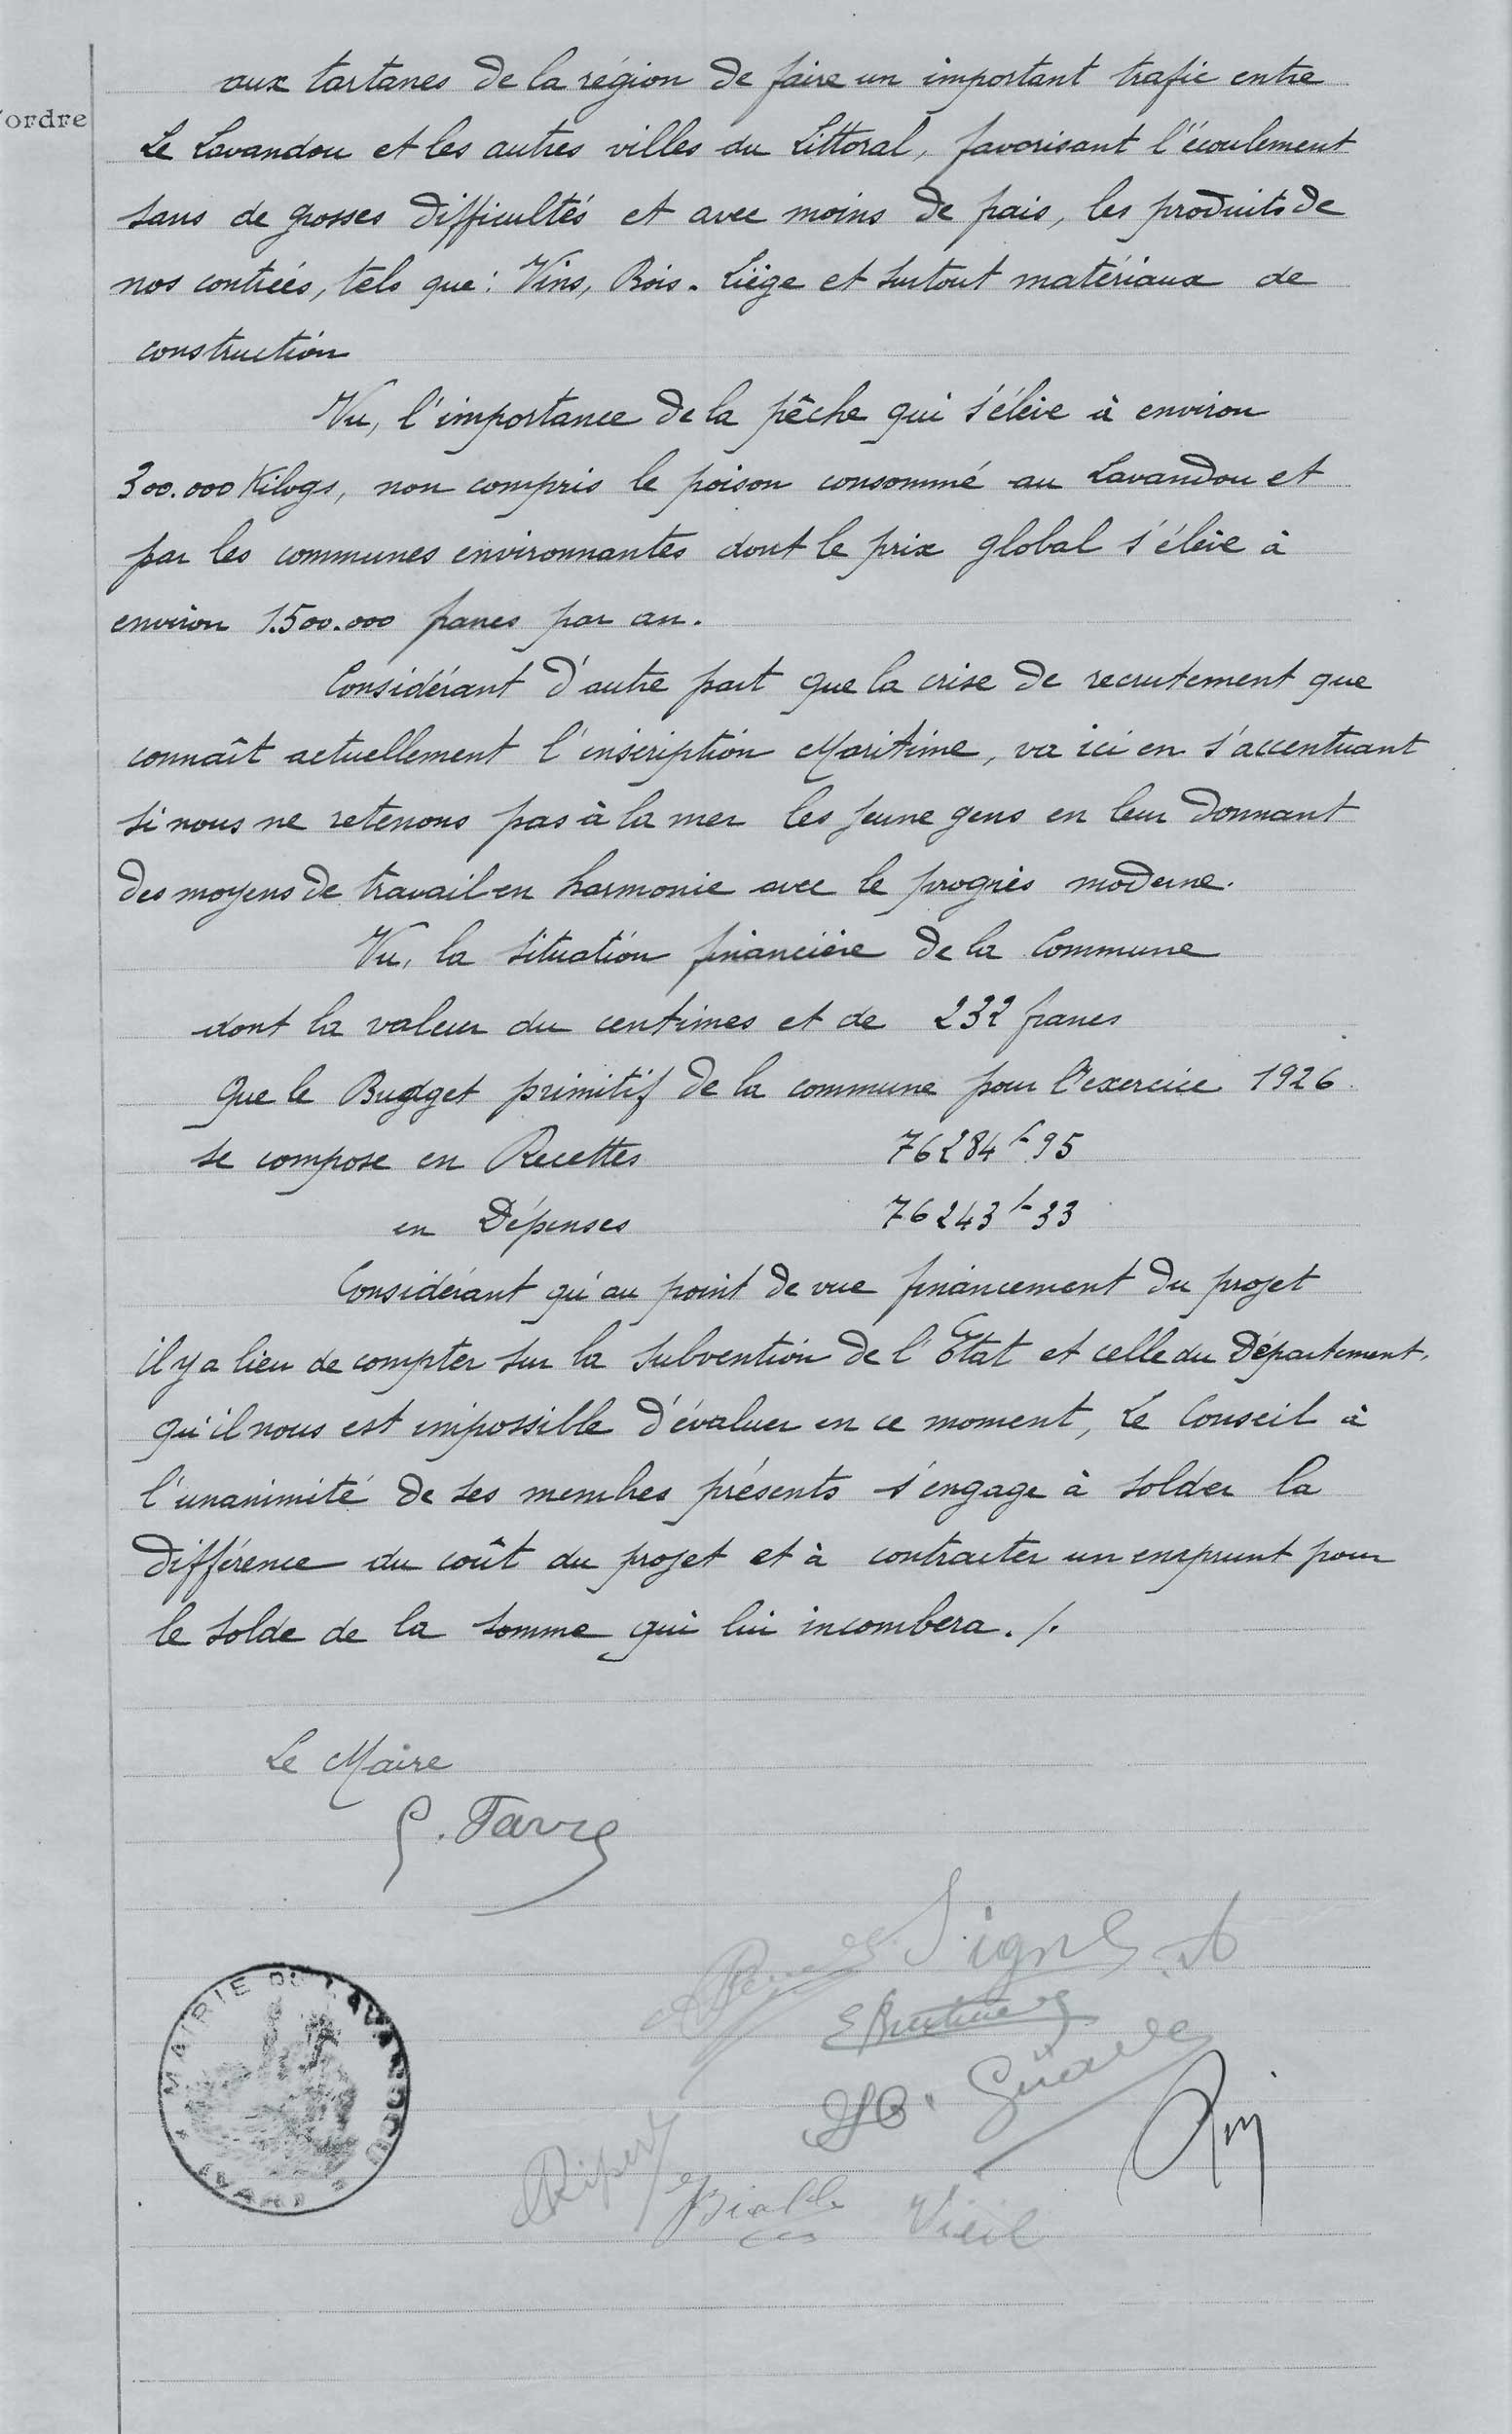 aux tartanes de la région de faire un important trafic entre
'ordre
Le Lavandou et les autres villes du Littoral, favorisant l'écoulement
sans de grosses difficultés et avec moins de frais, les produits de
nos contrées, tels que : Vins, Bois. Liège et surtout matériaux de
construction
Vu, l'importance de la pêche qui s'élève à environ
300.000 Kilogs, non compris le poison consommé au Lavandou et
par les communes environnantes dont le prix global s'élève à
environ 1.500.000 francs par an.
Considérant d'autre part que la crise de recrutement que
connaît actuellement l'inscription Maritime, va ici en s'accentuant
si nous ne retenons pas à la mer les jeune gens en leur donnant
des moyens de travail en harmonie avec le progrès moderne.
Vu, la situation financière de la Commune
dont la valeur du centimes et de 232 francs
Que le Budget primitif de la commune pour l'exercice 1926
se compose en Recettes 76284 f 95
en Dépenses 76243 f 33
Considérant qu'au point de vue financement du projet
il y a lieu de compter sur la subvention de l'Etat et celle du Département,
qu'il nous est impossible d'évaluer en ce moment, Le Conseil à
l'unanimité de ses membres présents s'engage à solder la
différence du coût du projet et à contracter un emprunt pour
le solde de la somme qui lui incombera. /.
Le Maire
G. Favre
MAIRIE DU LAVANDOU
Ripert
Vieil